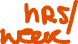 hrs/
week